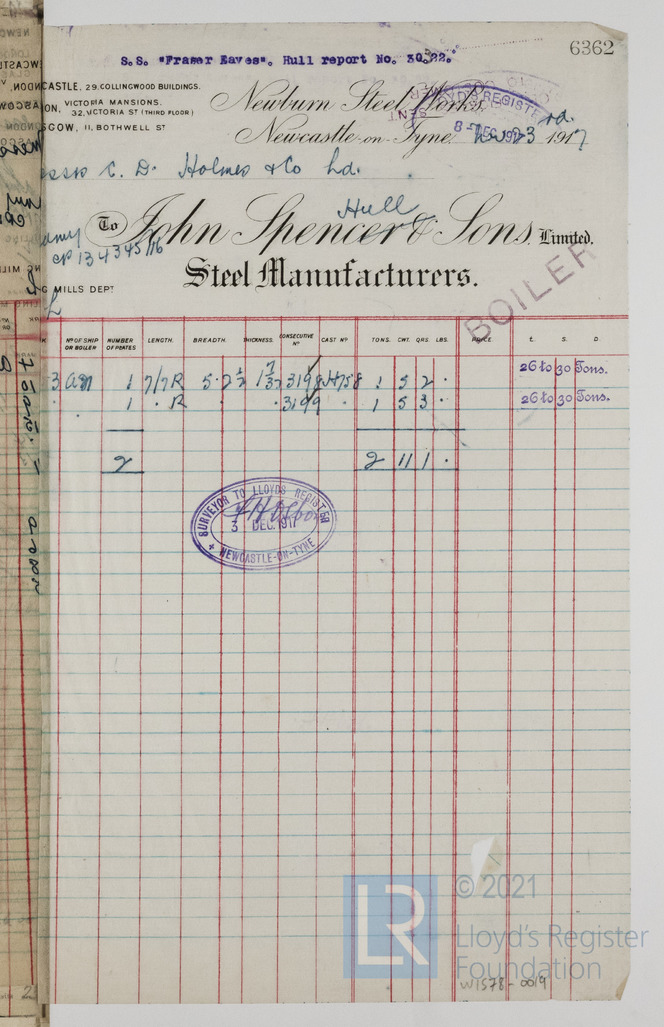 6362
S.S. "Fraser Eaves". Hull report No. 30,22.
CASTLE, 29, COLLINGWOOD BUILDINGS.
ON, VICTORIA MANSIONS.
32, VICTORIA ST (THIRD FLOOR)
SGOW, 11, BOTHWELL ST
Newburn Steel Works,
Newcastle-on-Tyne, 23 rd. 1917
LLOYD'S REGISTER
SENT
8-DEC.1917
C. D. Holmes & Co Ld.
Hull
To John Spencer & Sons, Limited.
CP 134345/16
Steel Manufacturers.
G MILLS DEPT
BOILER
NO OF SHIP OR BOILER NUMBER OF PLATES LENGTH. BREADTH. THICKNESS. CONSECUTIVE NO CAST NO TONS. CWT. QRS. LBS. PRICE £. S. D
1 7/7 R 5·2½ 1 7/32 3198 H758 1 5 2 · 26 to 30 Tons.
· 1 · R · · 3199 1 5 3 · 26 to 30 Tons.
2 2 11 1 ·
SURVEYOR TO LLOYDS REGISTER
3 DEC. 1917
NEWCASTLE-ON-TYNE
LR
© 2021
Lloyd's Register
Foundation
W1578-0019